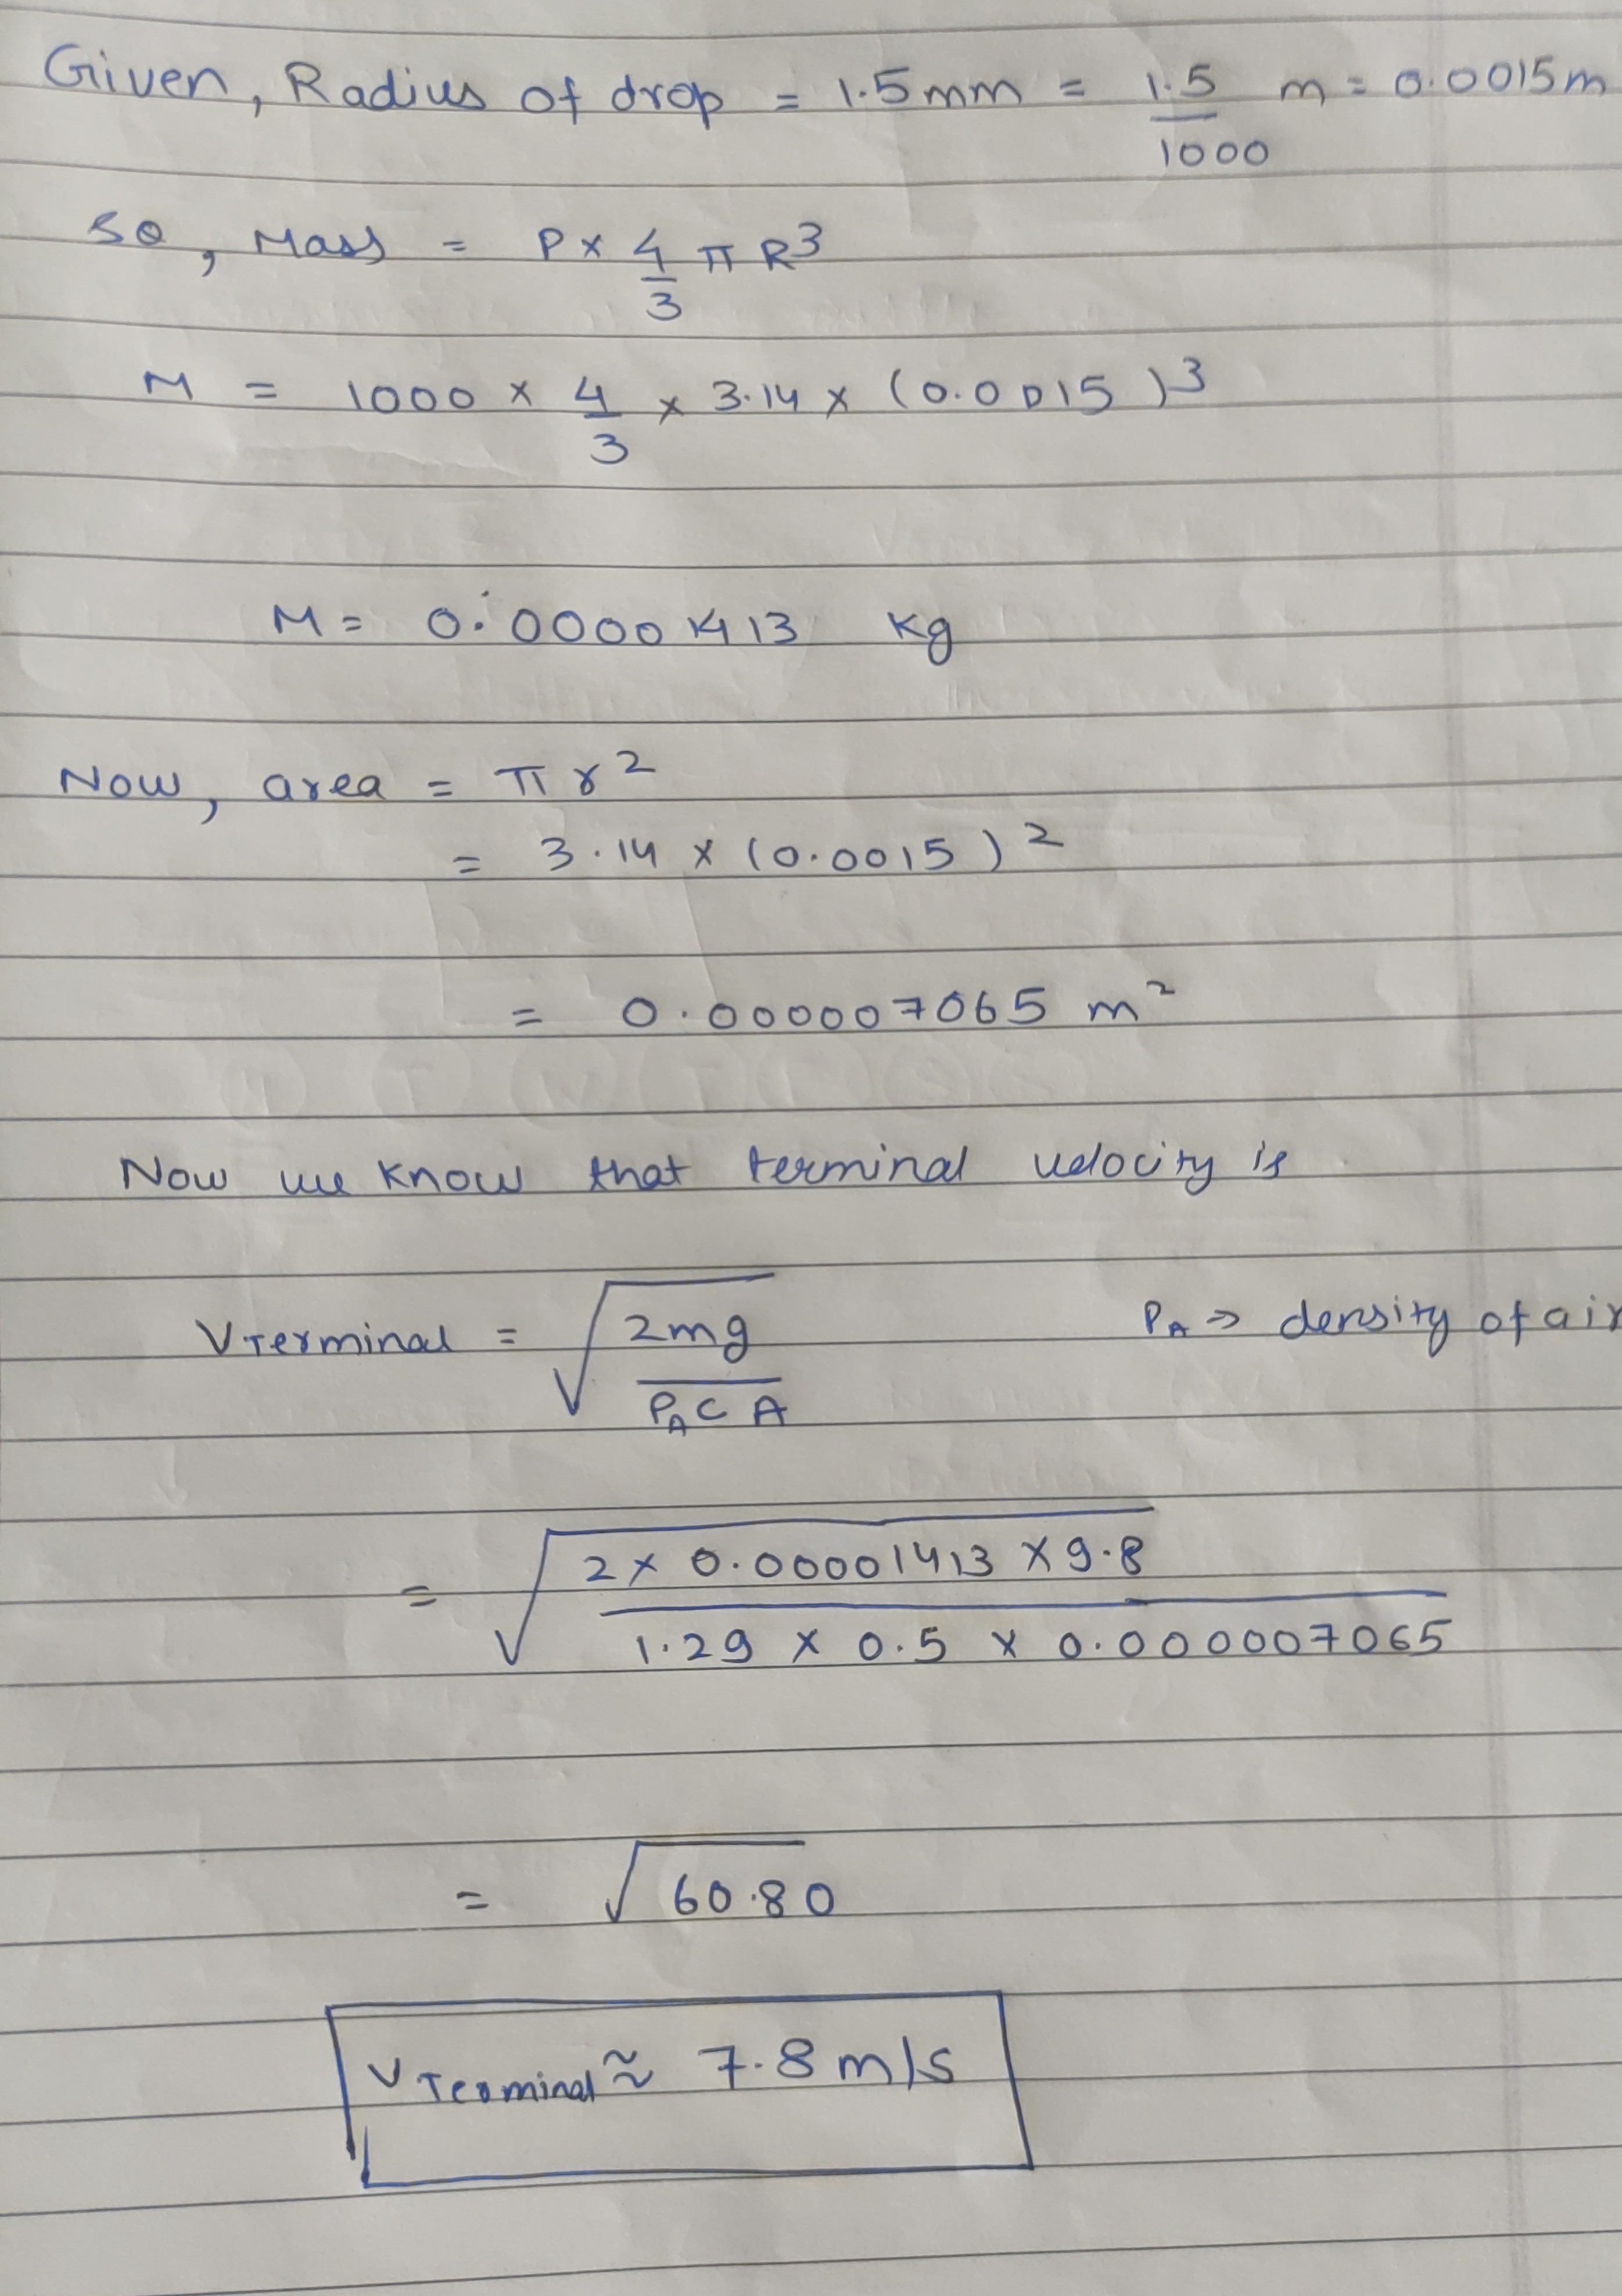 Given, Radius of drop = 1.5mm = 1.5/1000 m = 0.0015m
So, Mass = P × 4/3 π R³
M = 1000 × 4/3 × 3.14 × (0.0015)³
M = 0.00001413 Kg
Now, area = π r²
= 3.14 × (0.0015)²
= 0.000007065 m²
Now we know that terminal velocity is
V Terminal = √(2mg / P_A C A) P_A ⇒ density of air
= √(2 × 0.00001413 × 9.8 / 1.29 × 0.5 × 0.000007065)
= √60.80
V Terminal ≈ 7.8 m/s